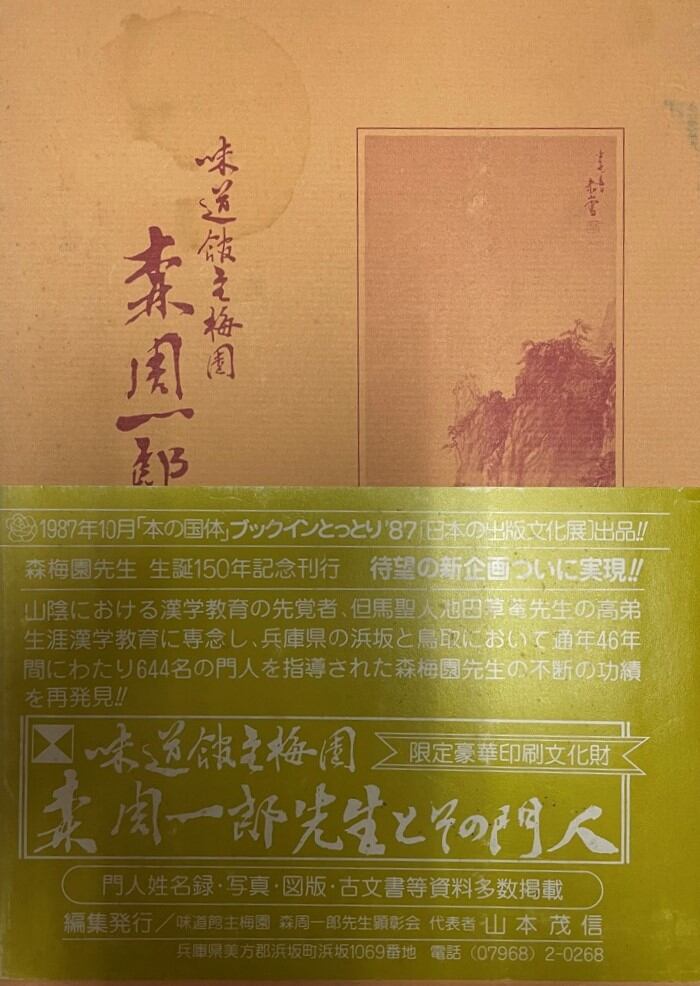 味道館主梅園
森周一郎
1987年10月「本の国体」ブックインとっとり'87[日本の出版文化展]出品!!
森梅園先生 生誕150年記念刊行 待望の新企画ついに実現!!
山陰における漢学教育の先覚者、但馬聖人池田草菴先生の高弟
生涯漢学教育に専念し、兵庫県の浜坂と鳥取において通年46年
間にわたり644名の門人を指導された森梅園先生の不断の功績
を再発見!!
味道館主梅園 限定豪華印刷文化財
森周一郎先生とその門人
門人姓名録・写真・図版・古文書等資料多数掲載
編集発行/味道館主梅園 森周一郎先生顕彰会 代表者 山本茂信
兵庫県美方郡浜坂町浜坂1069番地 電話(07968)2-0268